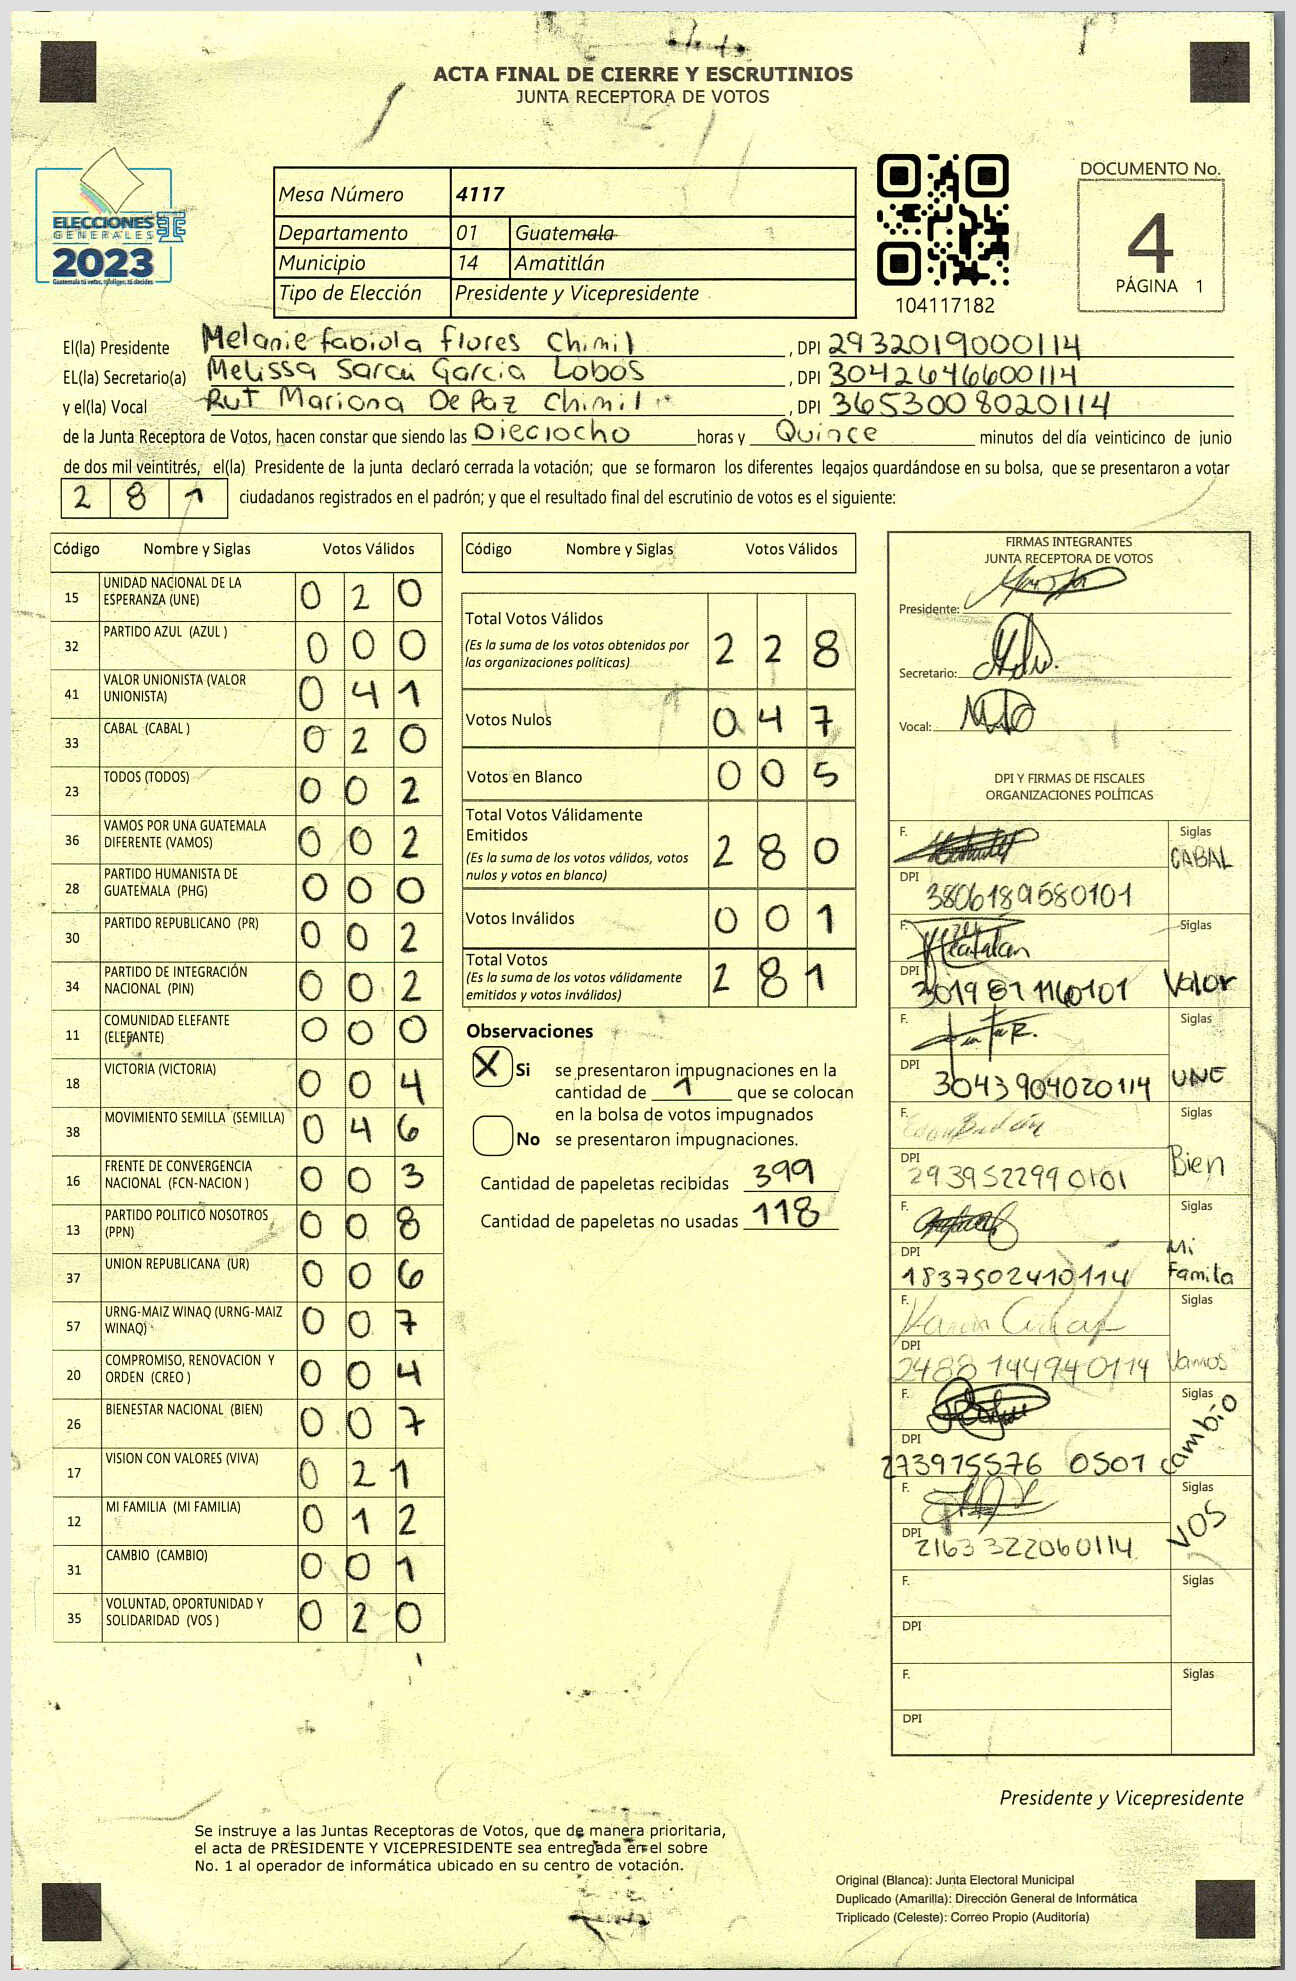 ACTA FINAL DE CIERRE Y ESCRUTINIOS
JUNTA RECEPTORA DE VOTOS
ELECCIONES
GENERALES
2023
Guatemala tú votas, tú eliges, tú decides
Mesa Número 4117
Departamento 01 Guatemala
Municipio 14 Amatitlán
Tipo de Elección Presidente y Vicepresidente
104117182
DOCUMENTO No.
4
PÁGINA 1
El(la) Presidente Melanie fabiola flores Chimil , DPI 2932019000114
EL(la) Secretario(a) Melissa Sarai Garcia Lobos , DPI 3042646600114
y el(la) Vocal Rut Mariana De Paz Chimil , DPI 3653008020114
de la Junta Receptora de Votos, hacen constar que siendo las Dieciocho horas y Quince minutos del día veinticinco de junio
de dos mil veintitrés, el(la) Presidente de la junta declaró cerrada la votación; que se formaron los diferentes legajos guardándose en su bolsa, que se presentaron a votar
2 8 1 ciudadanos registrados en el padrón; y que el resultado final del escrutinio de votos es el siguiente:
Código Nombre y Siglas Votos Válidos
15 UNIDAD NACIONAL DE LA ESPERANZA (UNE) 0 2 0
32 PARTIDO AZUL (AZUL ) 0 0 0
41 VALOR UNIONISTA (VALOR UNIONISTA) 0 4 1
33 CABAL (CABAL ) 0 2 0
23 TODOS (TODOS) 0 0 2
36 VAMOS POR UNA GUATEMALA DIFERENTE (VAMOS) 0 0 2
28 PARTIDO HUMANISTA DE GUATEMALA (PHG) 0 0 0
30 PARTIDO REPUBLICANO (PR) 0 0 2
34 PARTIDO DE INTEGRACIÓN NACIONAL (PIN) 0 0 2
11 COMUNIDAD ELEFANTE (ELEFANTE) 0 0 0
18 VICTORIA (VICTORIA) 0 0 4
38 MOVIMIENTO SEMILLA (SEMILLA) 0 4 6
16 FRENTE DE CONVERGENCIA NACIONAL (FCN-NACION ) 0 0 3
13 PARTIDO POLITICO NOSOTROS (PPN) 0 0 8
37 UNION REPUBLICANA (UR) 0 0 6
57 URNG-MAIZ WINAQ (URNG-MAIZ WINAQ) 0 0 7
20 COMPROMISO, RENOVACION Y ORDEN (CREO ) 0 0 4
26 BIENESTAR NACIONAL (BIEN) 0 0 7
17 VISION CON VALORES (VIVA) 0 2 1
12 MI FAMILIA (MI FAMILIA) 0 1 2
31 CAMBIO (CAMBIO) 0 0 1
35 VOLUNTAD, OPORTUNIDAD Y SOLIDARIDAD (VOS ) 0 2 0
Código Nombre y Siglas Votos Válidos
Total Votos Válidos
(Es la suma de los votos obtenidos por las organizaciones políticas) 2 2 8
Votos Nulos 0 4 7
Votos en Blanco 0 0 5
Total Votos Válidamente Emitidos
(Es la suma de los votos válidos, votos nulos y votos en blanco) 2 8 0
Votos Inválidos 0 0 1
Total Votos
(Es la suma de los votos válidamente emitidos y votos inválidos) 2 8 1
Observaciones
X Si se presentaron impugnaciones en la
cantidad de 1 que se colocan
en la bolsa de votos impugnados
No se presentaron impugnaciones.
Cantidad de papeletas recibidas 399
Cantidad de papeletas no usadas 118
FIRMAS INTEGRANTES
JUNTA RECEPTORA DE VOTOS
Presidente:
Secretario:
Vocal:
DPI Y FIRMAS DE FISCALES
ORGANIZACIONES POLÍTICAS
F. Siglas CABAL
DPI 3806189580101
F. Siglas Valor
DPI 3019871160101
F. Siglas UNE
DPI 3043904020114
F. Siglas Bien
DPI 2939522990101
F. Siglas Mi Famila
DPI 1837502410114
F. Siglas Vamos
DPI 2488144940114
F. Siglas Cambio
DPI 273915576 0501
F. Siglas VOS
DPI 2163322060114
F. Siglas
DPI
F. Siglas
DPI
Presidente y Vicepresidente
Se instruye a las Juntas Receptoras de Votos, que de manera prioritaria,
el acta de PRESIDENTE Y VICEPRESIDENTE sea entregada en el sobre
No. 1 al operador de informática ubicado en su centro de votación.
Original (Blanca): Junta Electoral Municipal
Duplicado (Amarilla): Dirección General de Informática
Triplicado (Celeste): Correo Propio (Auditoría)